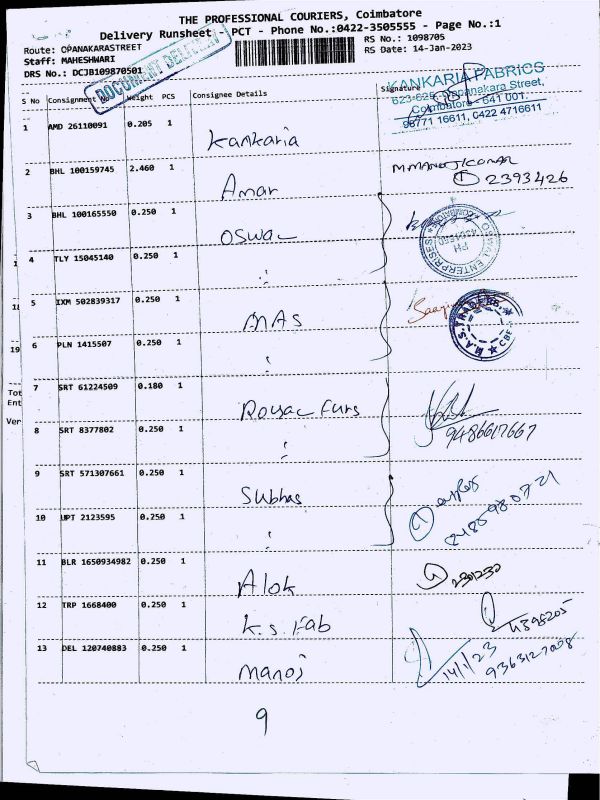 THE PROFESSIONAL COURIERS, Coimbatore
Delivery Runsheet - PCT - Phone No.:0422-3505555 - Page No.:1
Route: OPANAKARASTREET
RS No.: 1098705
Staff: MAHESHWARI
RS Date: 14-Jan-2023
DRS No.: DCJB109870501
DOCUMENT DELIVERY
S No Consignment No Weight PCS Consignee Details Signature
KANKARIA FABRICS
Coimbatore - 641 001.
98771 16611, 0422 4716611
1 AMD 26110091 0.205 1 Kankaria
2 BHL 100159745 2.460 1 Amar M MANOJ KUMAR
2393426
3 BHL 100165550 0.250 1 OSWAL
ENTERPRISES
4 TLY 15045140 0.250 1 "
5 IXM 502839317 0.250 1 MAS
M.A.S. TRADERS
CBE
6 PLN 1415507 0.250 1 "
7 SRT 61224509 0.180 1 Royal Furs
9486617667
8 SRT 8377802 0.250 1 "
9 SRT 571307661 0.250 1 Subhas
10 UPT 2123595 0.250 1 "
11 BLR 1650934982 0.250 1 Alok
12 TRP 1668400 0.250 1 K.S. Fab
13 DEL 120740883 0.250 1 Manoj 14/1/23
18
19
Tot
Ent
Ver
9